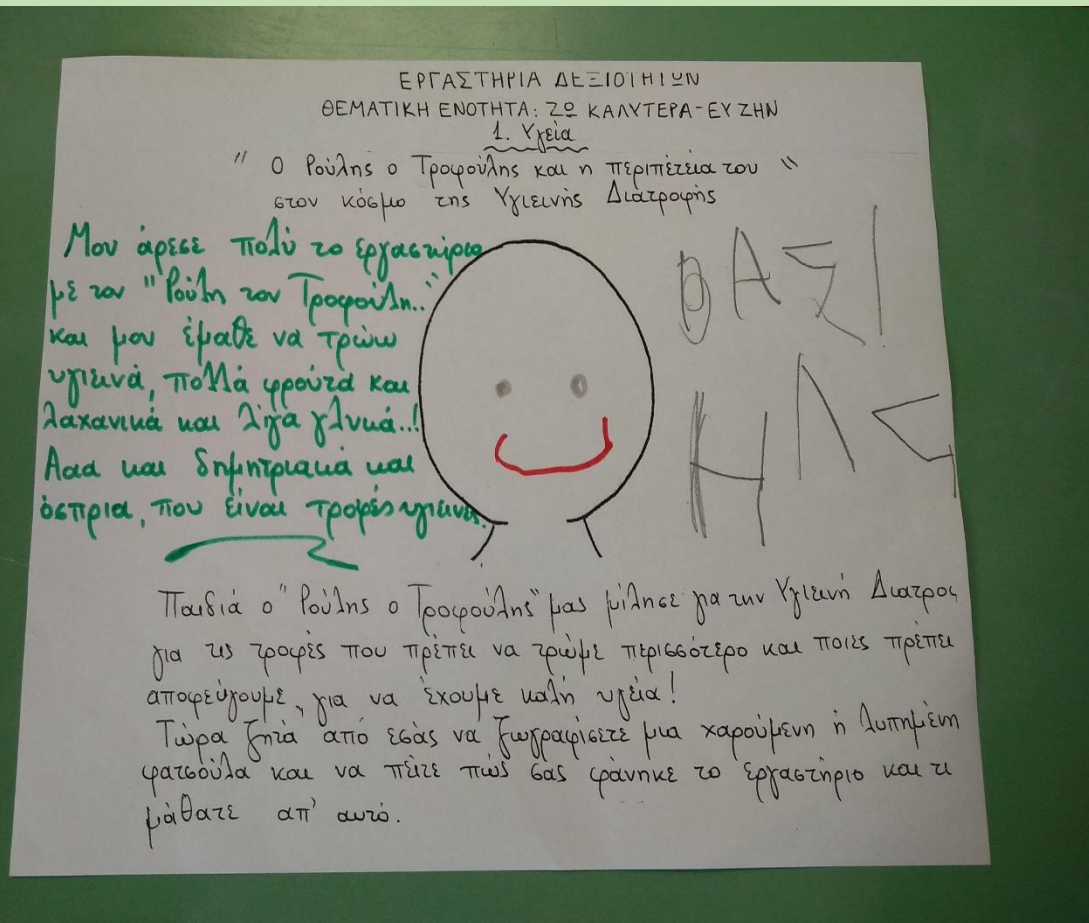 ΕΡΓΑΣΤΗΡΙΑ ΔΕΞΙΟΤΗΤΩΝ
ΘΕΜΑΤΙΚΗ ΕΝΟΤΗΤΑ: ΖΩ ΚΑΛΥΤΕΡΑ-ΕΥ ΖΗΝ
1. Υγεία
" Ο Ρούλης ο Τροφούλης και η περιπέτεια του "
στον κόσμο της Υγιεινής Διατροφής
Μου άρεσε πολύ το εργαστήριο
με τον "Ρούλη τον Τροφούλη.."
και μου έμαθε να τρώω
υγιεινά, πολλά φρούτα και
λαχανικά και λίγα γλυκά..!
Ααα και δημητριακά και
όσπρια, που είναι τροφές υγιεινές.
ΘΑΣΙ
ΗΛΣ
Παιδιά ο "Ρούλης ο Τροφούλης" μας μίλησε για την Υγιεινή Διατροφ
για τις τροφές που πρέπει να τρώμε περισσότερο και ποιες πρέπει
αποφεύγουμε, για να έχουμε καλή υγεία!
Τώρα ζητά από εσάς να ζωγραφίσετε μια χαρούμενη ή λυπημένη
φατσούλα και να πείτε πώς σας φάνηκε το εργαστήριο και τι
μάθατε απ' αυτό.